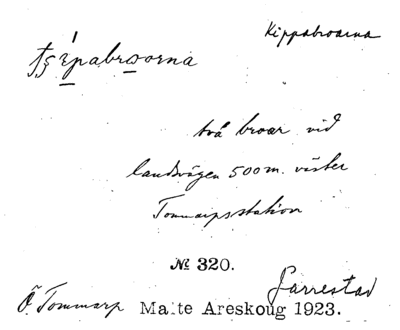 Kippabroarna
ţşépabrọorna
två broar vid
landsvägen 500 m. väster
Tommarpsstation
№ 320.
Järrestad
Ö. Tommarp Malte Areskoug 1923.